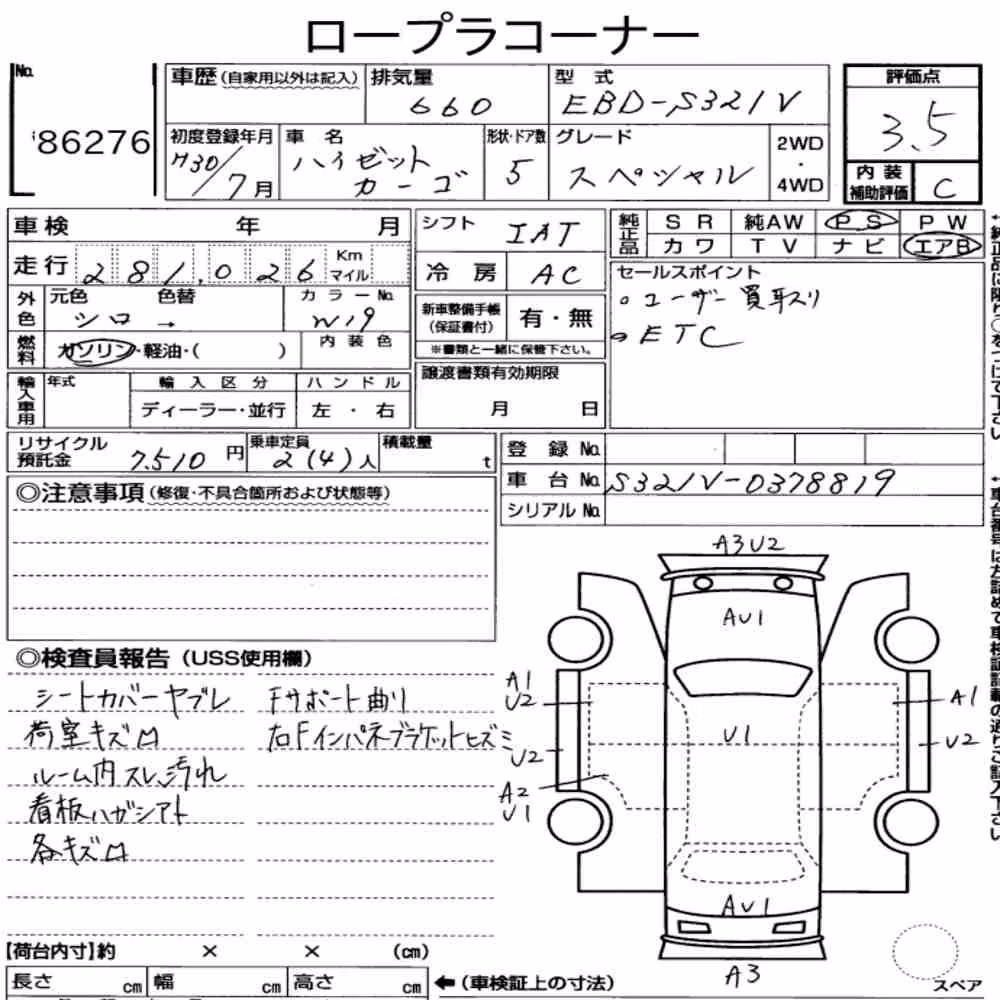 ロープラコーナー
No. 86276
車歴(自家用以外は記入) 排気量 660 型式 EBD-S321V
評価点 3.5
初度登録年月 H30/7月 車名 ハイゼットカーゴ 形状・ドア数 5 グレード スペシャル 2WD・4WD
内装補助評価 C
車検 年 月
走行 281,026 Km マイル
シフト IAT
冷房 AC
純正品 SR 純AW PS PW
カワ TV ナビ エアB
セールスポイント
○ユーザー買取り
○ETC
外色 元色 色替 シロ → カラーNo. W19
燃料 ガソリン・軽油・( ) 内装色
新車整備手帳(保証書付) 有・無
※書類と一緒に保管下さい。
輸入車用 年式 輸入区分 ハンドル
ディーラー・並行 左・右
譲渡書類有効期限
月 日
リサイクル預託金 7,510円 乗車定員 2(4)人 積載量 t
登録No.
車台No. S321V-0378819
シリアルNo.
◎注意事項(修復・不具合箇所および状態等)
◎検査員報告(USS使用欄)
シートカバーヤブレ Fサポート曲り
荷室キズ凹 右Fインパネブラケットヒズミ
ルーム内スレ、汚れ
看板ハガシアト
各キズ凹
A3U2
AU1
A1
U2
U2
A2
U1
U1
A1
U2
AU1
A3
スペア
【荷台内寸】約 × × (cm)
長さ cm 幅 cm 高さ cm ←(車検証上の寸法)